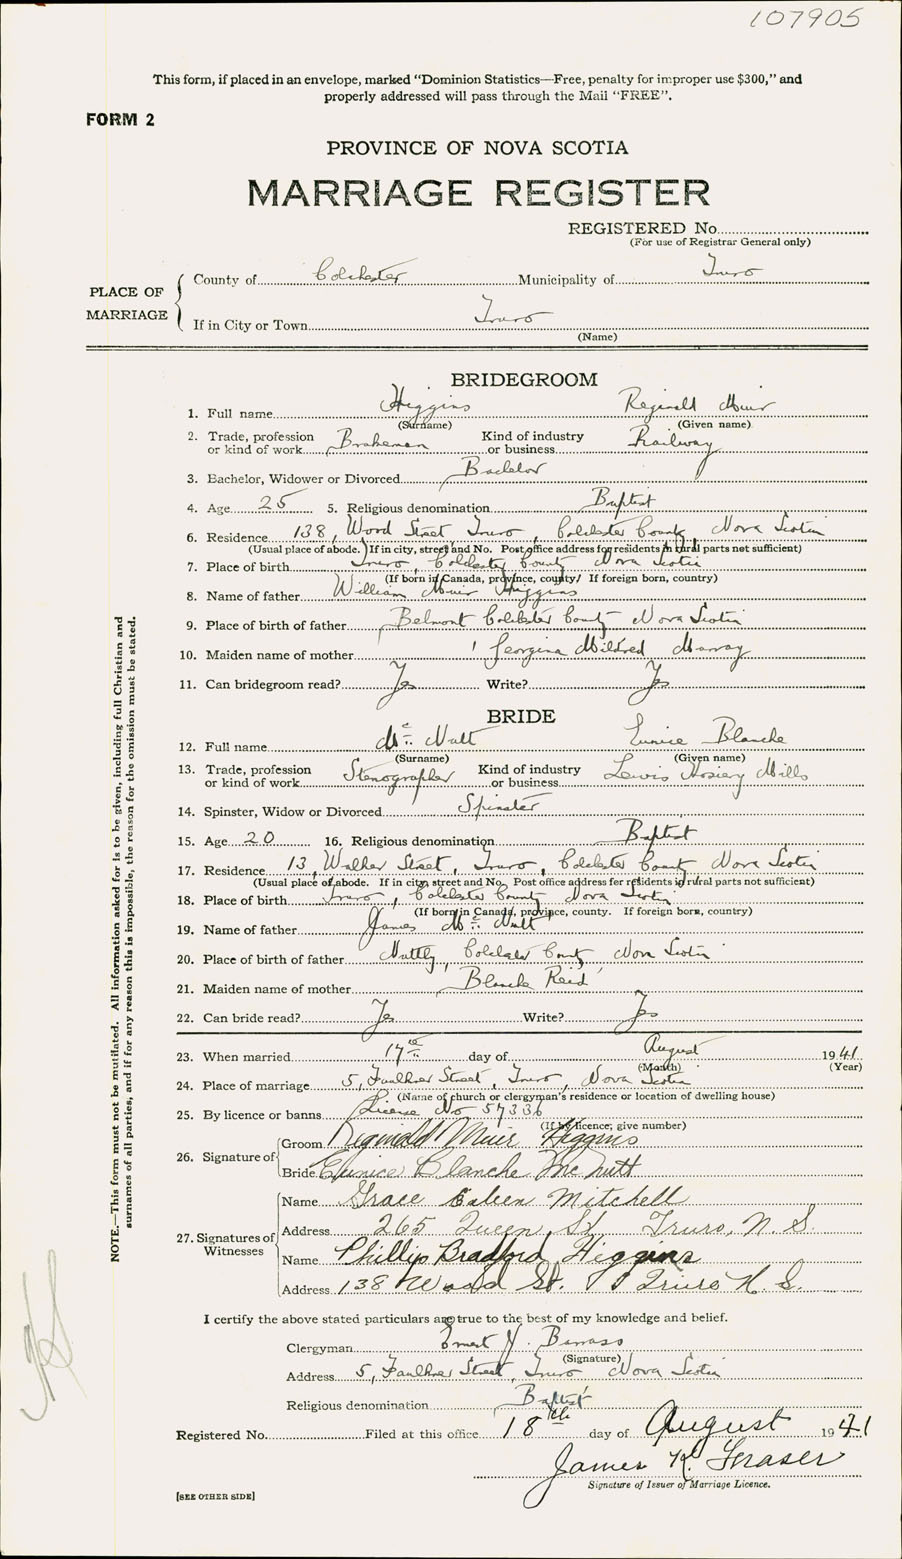 107905
This form, if placed in an envelope, marked "Dominion Statistics—Free, penalty for improper use $300," and
properly addressed will pass through the Mail "FREE".
FORM 2
PROVINCE OF NOVA SCOTIA
MARRIAGE REGISTER
REGISTERED No.
(For use of Registrar General only)
PLACE OF MARRIAGE
County of Colchester Municipality of Truro
If in City or Town Truro
(Name)
BRIDEGROOM
1. Full name Higgins Reginald Muir
(Surname) (Given name)
2. Trade, profession or kind of work Brakeman Kind of industry or business Railway
3. Bachelor, Widower or Divorced Bachelor
4. Age 25 5. Religious denomination Baptist
6. Residence 138, Wood Street Truro, Colchester County Nova Scotia
(Usual place of abode. If in city, street and No. Post office address for residents in rural parts not sufficient)
7. Place of birth Truro, Colchester County Nova Scotia
(If born in Canada, province, county. If foreign born, country)
8. Name of father William Muir Higgins
9. Place of birth of father Belmont Colchester County Nova Scotia
10. Maiden name of mother Georgina Mildred Murray
11. Can bridegroom read? Yes Write? Yes
BRIDE
12. Full name Mc Nutt Eunice Blanche
(Surname) (Given name)
13. Trade, profession or kind of work Stenographer Kind of industry or business Lewis Hosiery Mills
14. Spinster, Widow or Divorced Spinster
15. Age 20 16. Religious denomination Baptist
17. Residence 13, Walker Street, Truro, Colchester County Nova Scotia
(Usual place of abode. If in city, street and No. Post office address for residents in rural parts not sufficient)
18. Place of birth Truro, Colchester County Nova Scotia
(If born in Canada, province, county. If foreign born, country)
19. Name of father James Mc Nutt
20. Place of birth of father Nuttby, Colchester County Nova Scotia
21. Maiden name of mother Blanche Reid
22. Can bride read? Yes Write? Yes
23. When married 17th day of August 1941
(Month) (Year)
24. Place of marriage 5, Faulkner Street, Truro, Nova Scotia
(Name of church or clergyman's residence or location of dwelling house)
25. By licence or banns License No 57336
(If by licence, give number)
26. Signature of
Groom Reginald Muir Higgins
Bride Eunice Blanche McNutt
27. Signatures of Witnesses
Name Grace Eileen Mitchell
Address 265 Queen St Truro, N. S.
Name Phillip Bradford Higgins
Address 138 Wood St. Truro N. S.
I certify the above stated particulars are true to the best of my knowledge and belief.
Clergyman Ernest J. Barrass
(Signature)
Address 5, Faulkner Street, Truro Nova Scotia
Religious denomination Baptist
Registered No. Filed at this office 18th day of August 1941
James K. Fraser
Signature of Issuer of Marriage Licence.
[SEE OTHER SIDE]
NOTE.—This form must not be mutilated. All information asked for is to be given, including full Christian and
surnames of all parties, and if for any reason this is impossible, the reason for the omission must be stated.